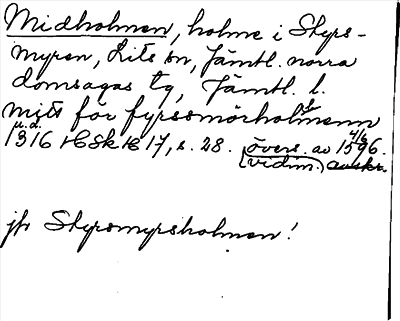 Midholmen, holme i Styrs-
myren, Lits sn, Jämtl. norra
domsagas tg, Jämtl. l.
mitt för fyrssmörholmenn
u.d.
1316 HSH 17, s. 28. övers. av 4/6 1596.
(vidim.) avskr.
jfr Styrsmyrsholmen!